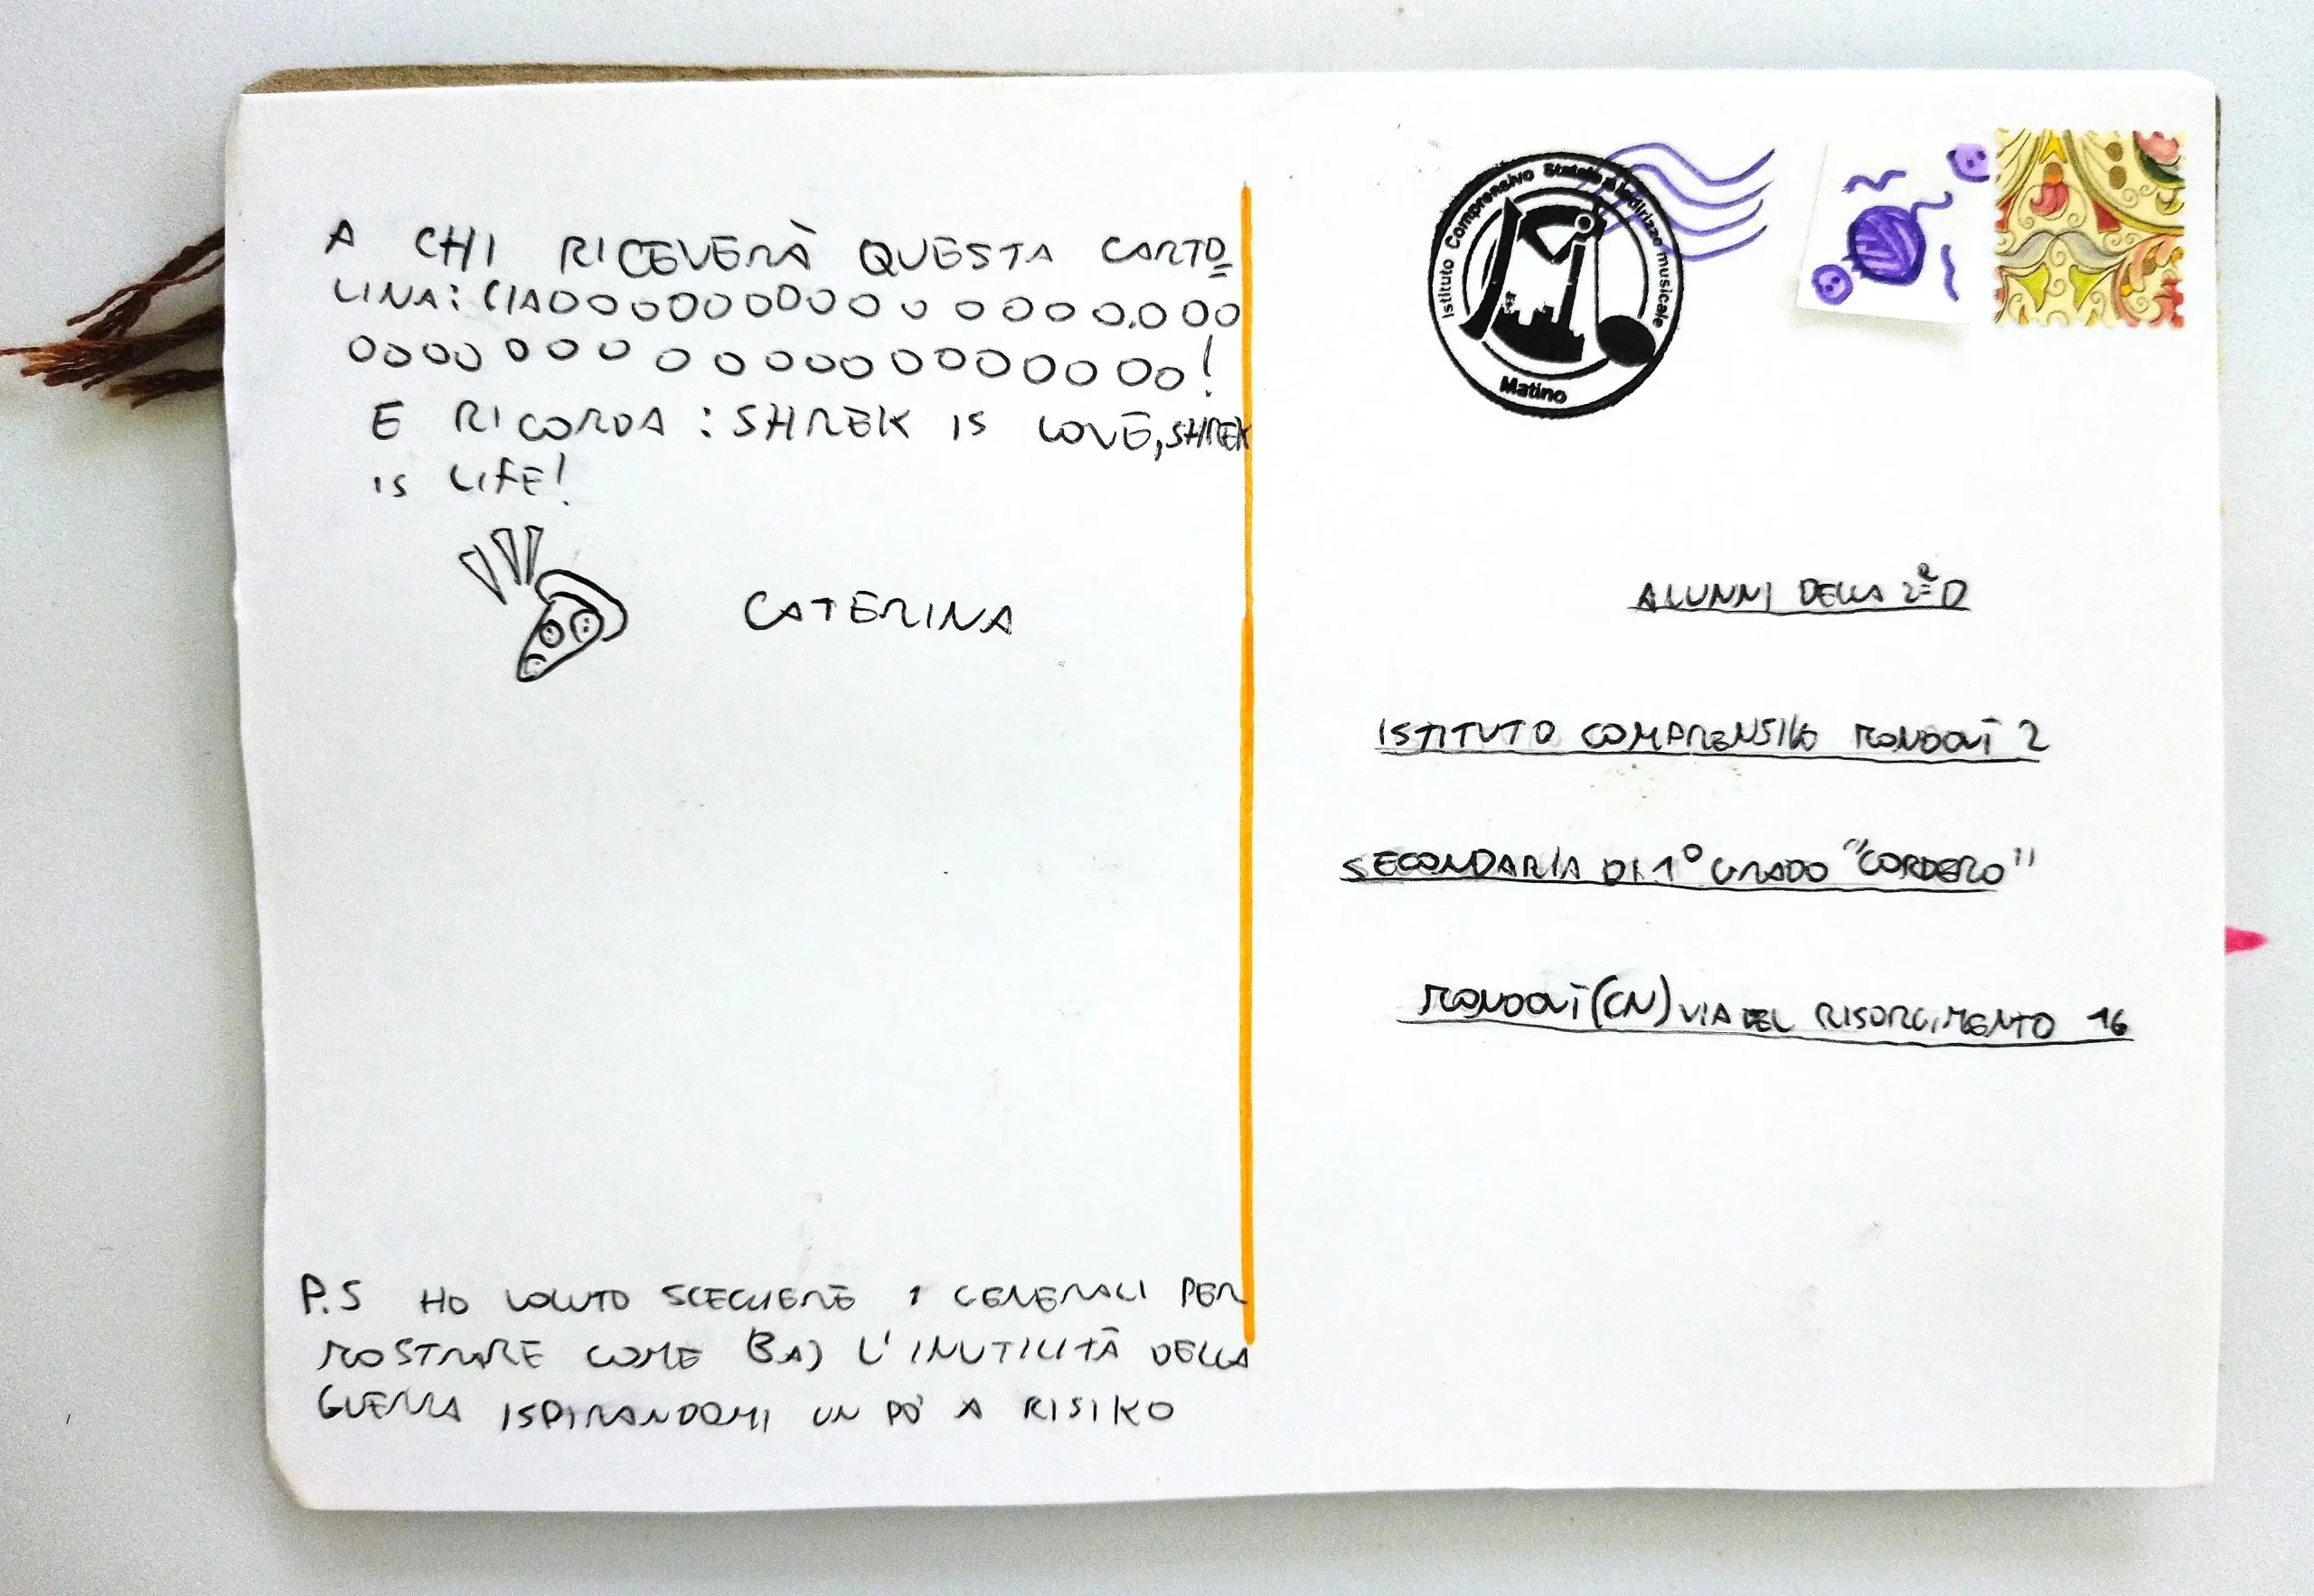 A CHI RICEVERÀ QUESTA CARTO=
LINA: CIAOOOOOOOOOOO OOOOO.OOO
OOOO OOO OOOOOOOOOOOOO!
E RICORDA: SHREK IS LOVE, SHREK
IS LIFE!
CATERINA
P.S HO VOLUTO SCEGLIERE I GENERALI PER
MOSTRARE COME BAJ L'INUTILITÀ DELLA
GUERRA ISPIRANDOMI UN PO' A RISIKO
Istituto Comprensivo Statale a indirizzo musicale
Matino
ALUNNI DELLA 2ª D
ISTITUTO COMPRENSIVO MONDOVÌ 2
SECONDARIA DI 1° GRADO "CORDERO"
MONDOVÌ (CN) VIA DEL RISORGIMENTO 16